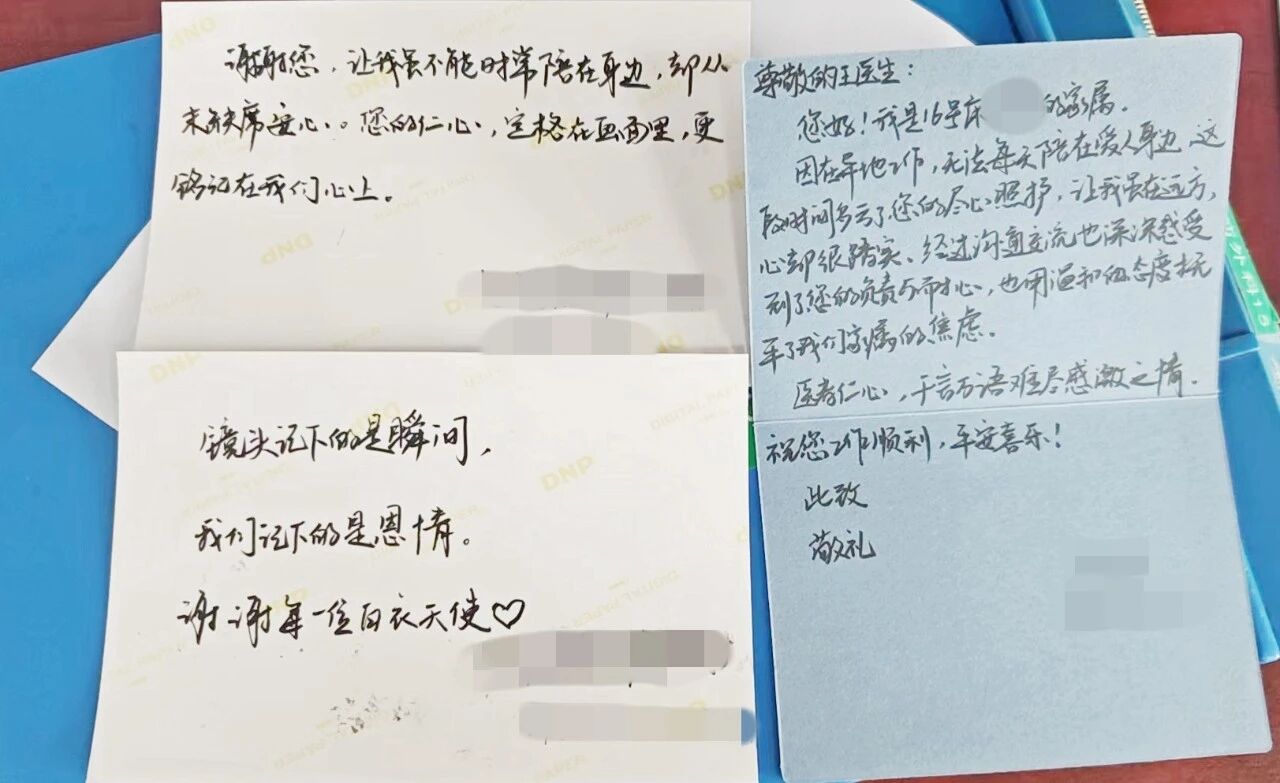 谢谢您，让我虽不能时常陪在身边，却从
未缺席安心。您的仁心，定格在画面里，更
铭记在我们心上。
镜头记下的是瞬间，
我们记下的是恩情。
谢谢每一位白衣天使♡
尊敬的王医生：
您好！我是16号床 的家属。
因在异地工作，无法每天陪在爱人身边，这
段时间多亏了您的尽心照护，让我虽在远方，
心却很踏实、经过沟通交流也深深感受
到了您的负责与耐心，也用温和的态度抚
平了我们家属的焦虑。
医者仁心，千言万语难尽感激之情。
祝您工作顺利，平安喜乐！
此致
敬礼
DNP
DNP
DNP
DNP
DNP
DIGITAL PAPER
DIGITAL PAPER
外科15